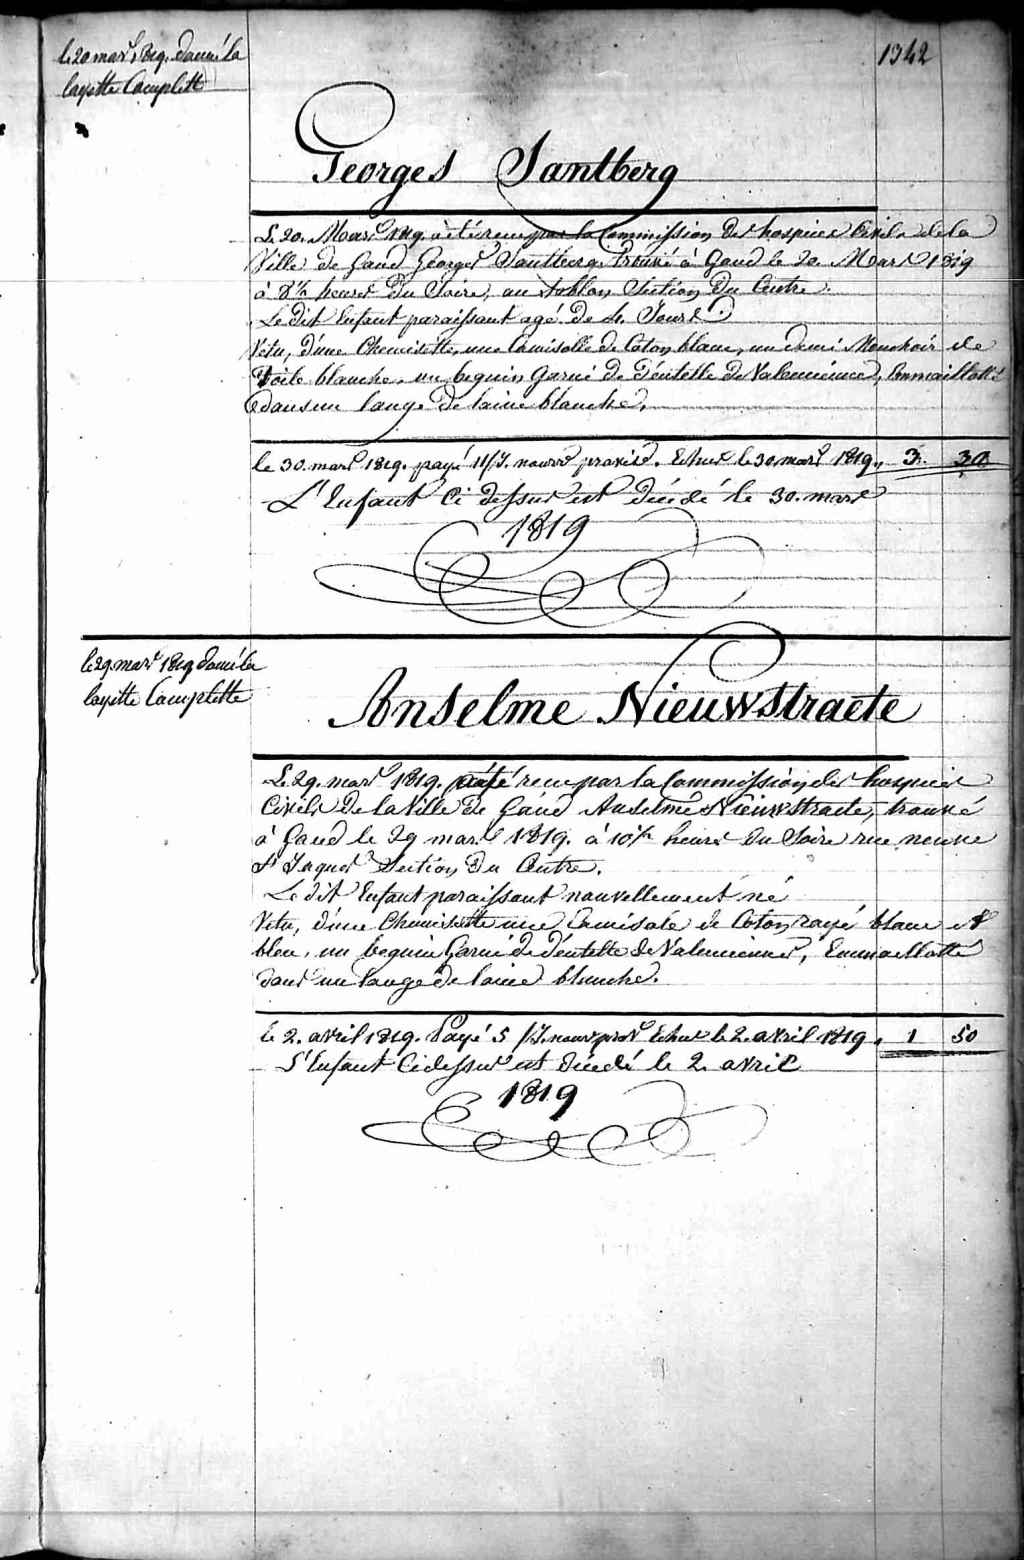 1342
le 20 mars 1819. donné la
layette Complett
Georges Santberg
Le 20. Mars 1819. a été recu par la Commission des hospices Civils de la
Ville de Gand Georges Santberg trouvé à Gand le 20 Mars 1819
à 8½ heures du Soire, au Section du Centre.
Le dit Enfant paraissant agé de 4. Jours
Vetu, d'une Chemisette, une Camisolle de Coton blanc, un demi Mouchoir de
toile blanche, un beguin Garni de Déntelle de Valenciennes, Emmaillotté
dans un lange de laine blanche.
le 30. mars 1819. payé 11/J. nourre provire. Echus le 30. mars 1819. 3. 30
L'Enfant Ci dessus est Décédé le 30. mars
1819
le 29 mars 1819 donné la
layette Complette
Anselme Nieuwstraete
Le 29. mars 1819. a été recu par la Commission des hospices
Civils de la Ville de Gand Anselme Nieuwstraete, trouvé
à Gand le 29 mars 1819. à 10½ heures du Soire rue neuve
St Jaques Section Du Centre.
Le dit Enfant paraissant nouvellement né
Vetu, d'une Chemisette une Camisole de Coton rayé blanc et
bleu, un beguin Garni de Déntelle de Valenciennes, Emmaillotté
dans un lange de laine blanche.
le 2. avril 1819. Payé 5/J. nour provre Echus le 2. avril 1819. 1 50
L'Enfant Ci dessus est Décédé le 2. avril
1819